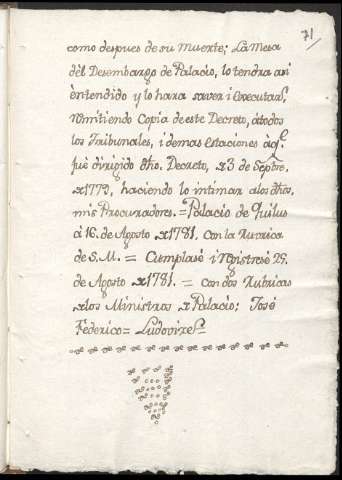 71
como despues de su muerte; La Mesa
dèl Desembargo de Palacio, lo tendra asi
èntendido y lo hara saver i èxecutar,
rèmitiendo Copia de este Decreto, àtodos
los Tribunales, i demas estaciones àq.e
fuè dirigido dho. Decreto, 3 de Septre.
1772, haciendo lo intimar alos dhos.
mis Procuradores. = Palacio de Quilus
à 16. de Agosto 1781. con la Rubrica
de S. M. = Cumplase i règistrese 29.
de Agosto 1781. = con dos Rubricas
los Ministros Palacio: José
Féderico = Ludovize